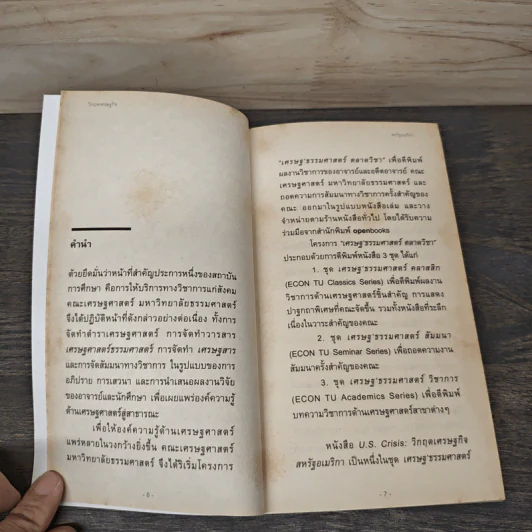 คำนำ
ด้วยยึดมั่นว่าหน้าที่สำคัญประการหนึ่งของสถาบัน
การศึกษา คือการให้บริการทางวิชาการแก่สังคม
คณะเศรษฐศาสตร์ มหาวิทยาลัยธรรมศาสตร์
จึงได้ปฏิบัติหน้าที่ดังกล่าวอย่างต่อเนื่อง ทั้งการ
จัดทำตำราเศรษฐศาสตร์ การจัดทำวารสาร
เศรษฐศาสตร์ธรรมศาสตร์ การจัดทำ เศรษฐสาร
และการจัดสัมมนาทางวิชาการ ในรูปแบบของการ
อภิปราย การเสวนา และการนำเสนอผลงานวิจัย
ของอาจารย์และนักศึกษา เพื่อเผยแพร่องค์ความรู้
ด้านเศรษฐศาสตร์สู่สาธารณะ
เพื่อให้องค์ความรู้ด้านเศรษฐศาสตร์
แพร่หลายในวงกว้างยิ่งขึ้น คณะเศรษฐศาสตร์
มหาวิทยาลัยธรรมศาสตร์ จึงได้ริเริ่มโครงการ
- 6 -
"เศรษฐ'ธรรมศาสตร์ ตลาดวิชา" เพื่อตีพิมพ์
ผลงานวิชาการของอาจารย์และอดีตอาจารย์ คณะ
เศรษฐศาสตร์ มหาวิทยาลัยธรรมศาสตร์ และ
ถอดความการสัมมนาทางวิชาการครั้งสำคัญของ
คณะ ออกมาในรูปแบบหนังสือเล่ม และวาง
จำหน่ายตามร้านหนังสือทั่วไป โดยได้รับความ
ร่วมมือจากสำนักพิมพ์ openbooks
โครงการ "เศรษฐ'ธรรมศาสตร์ ตลาดวิชา"
ประกอบด้วยการตีพิมพ์หนังสือ 3 ชุด ได้แก่
1. ชุด เศรษฐ'ธรรมศาสตร์ คลาสสิก
(ECON TU Classics Series) เพื่อตีพิมพ์ผลงาน
วิชาการด้านเศรษฐศาสตร์ชิ้นสำคัญ การแสดง
ปาฐกถาพิเศษที่คณะจัดขึ้น รวมทั้งหนังสือที่ระลึก
เนื่องในวาระสำคัญของคณะ
2. ชุด เศรษฐ'ธรรมศาสตร์ สัมมนา
(ECON TU Seminar Series) เพื่อถอดความงาน
สัมมนาครั้งสำคัญของคณะ
3. ชุด เศรษฐ'ธรรมศาสตร์ วิชาการ
(ECON TU Academics Series) เพื่อตีพิมพ์
บทความวิชาการด้านเศรษฐศาสตร์สาขาต่างๆ
หนังสือ U.S. Crisis: วิกฤตเศรษฐกิจ
สหรัฐอเมริกา เป็นหนึ่งในชุด เศรษฐ'ธรรมศาสตร์
- 7 -